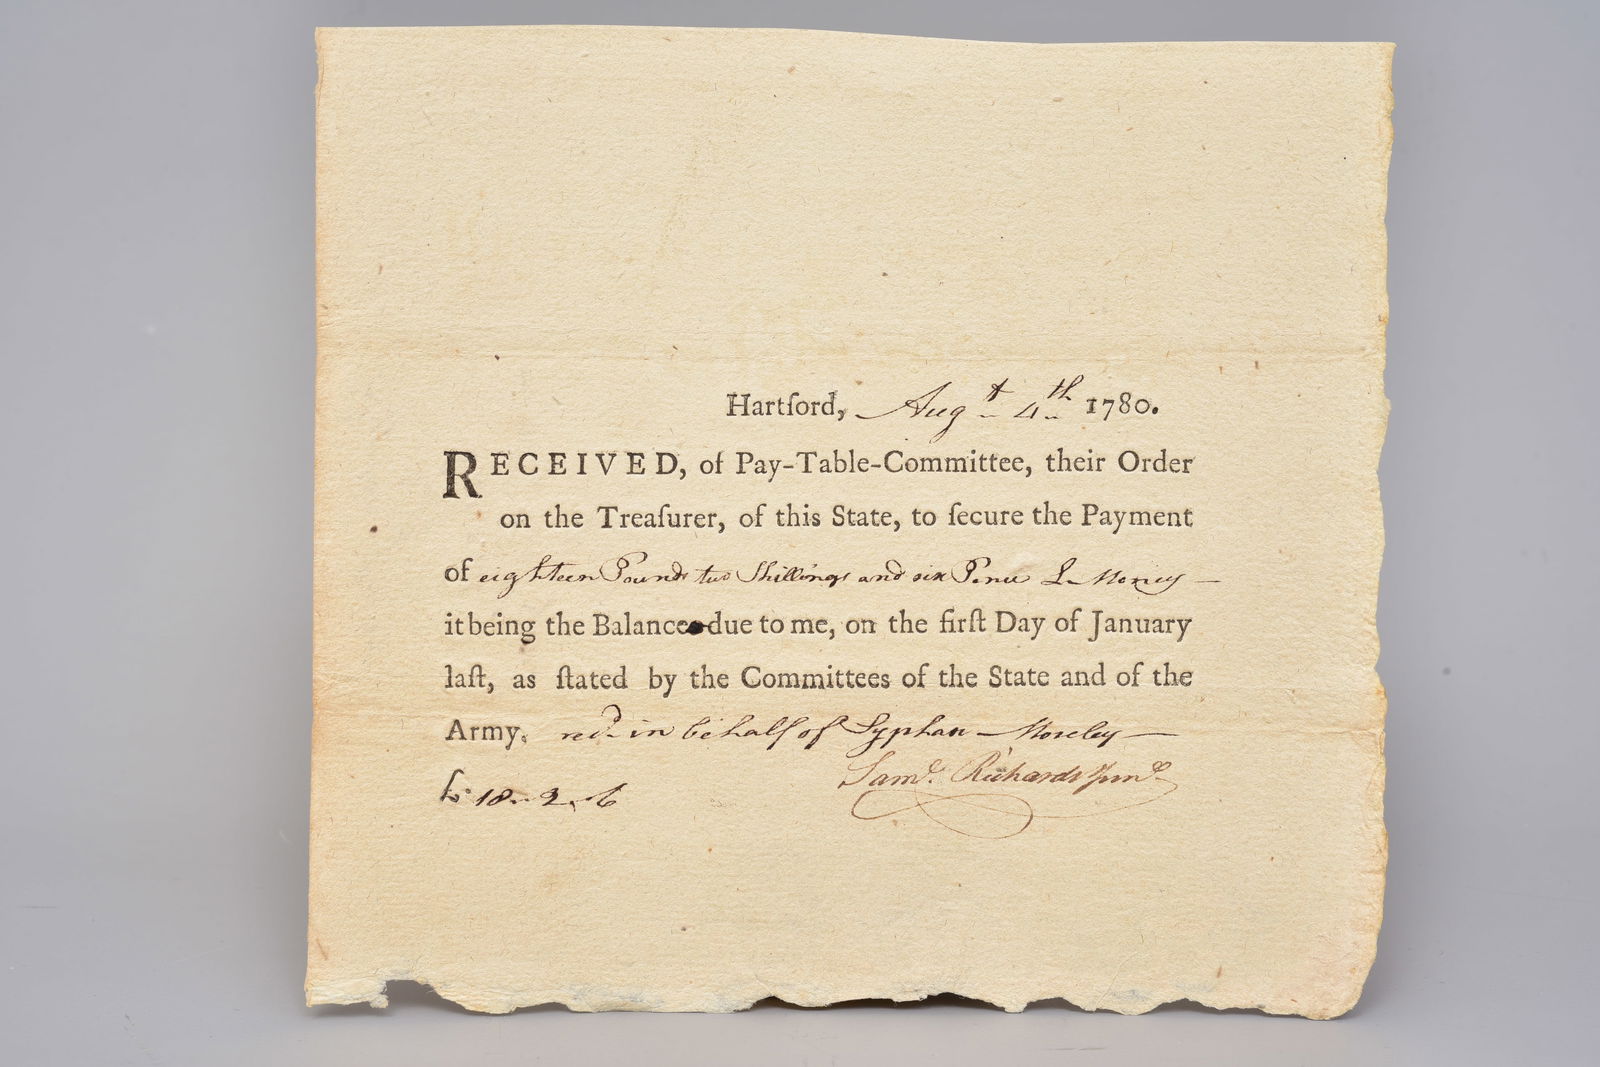 Hartford, Augt 4th 1780.
RECEIVED, of Pay-Table-Committee, their Order
on the Treaſurer, of this State, to ſecure the Payment
of eighteen Pounds two Shillings and six Pence L Money
it being the Balance due to me, on the firſt Day of January
laſt, as ſtated by the Committees of the State and of the
Army. recd in behalf of Syphan Moseley
Saml. Richards Junr
£ 18 .. 2 .. 6